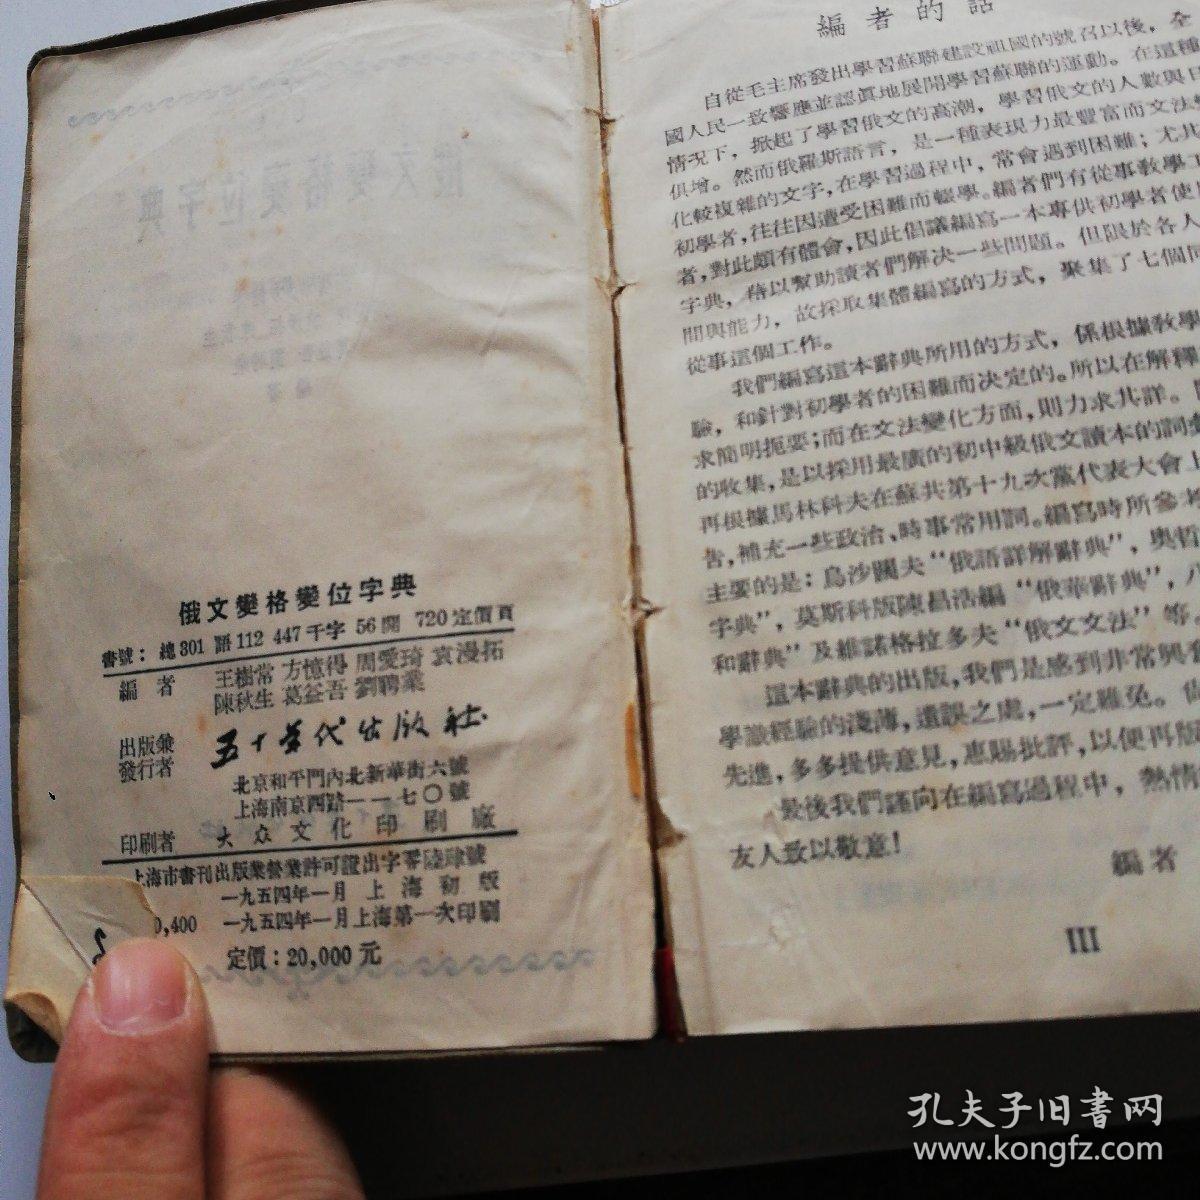 俄文變格變位字典
書號：總301 語112 447千字 56開 720定價頁
編者 王樹常 方憶得 周愛琦 袁漫拓
陳秋生 葛益吾 劉聘業
出版兼發行者 五十年代出版社
北京和平門內北新華街六號
上海南京西路一一七〇號
印刷者 大众文化印刷廠
上海市書刊出版業營業許可證出字零陸肆號
一九五四年一月 上海初版
0,400 一九五四年一月上海第一次印刷
定價：20,000元
編者的話
自從毛主席發出學習蘇聯建設祖國的號召以後，全
國人民一致響應並認眞地展開學習蘇聯的運動。在這種
情況下，掀起了學習俄文的高潮，學習俄文的人數與日
俱增。然而俄羅斯語言，是一種表現力最豐富而文法
化較複雜的文字，在學習過程中，常會遇到困難；尤其
初學者，往往因遭受困難而輟學。編者們有從事敎學工
者，對此頗有體會，因此倡議編寫一本專供初學者使
字典，藉以幫助讀者們解决一些問題。但限於各人
間與能力，故採取集體編寫的方式，聚集了七個同
從事這個工作。
我們編寫這本辭典所用的方式，係根據敎學
驗，和針對初學者的困難而决定的。所以在解釋
求簡明扼要；而在文法變化方面，則力求其詳。
的收集，是以採用最廣的初中級俄文讀本的詞彙
再根據馬林科夫在蘇共第十九次黨代表大會上
告，補充一些政治、時事常用詞。編寫時所參考
主要的是：烏沙闊夫“俄語詳解辭典”，奥哲
字典”，莫斯科版陳昌浩編“俄華辭典”，八
和辭典”及維諾格拉多夫“俄文文法”等。
這本辭典的出版，我們是感到非常興奮
學識經驗的淺薄，遺誤之處，一定難免。
先進，多多提供意見，惠賜批評，以便再版
最後我們謹向在編寫過程中，熱情
友人致以敬意！
編者
III
孔夫子旧书网
www.kongfz.com